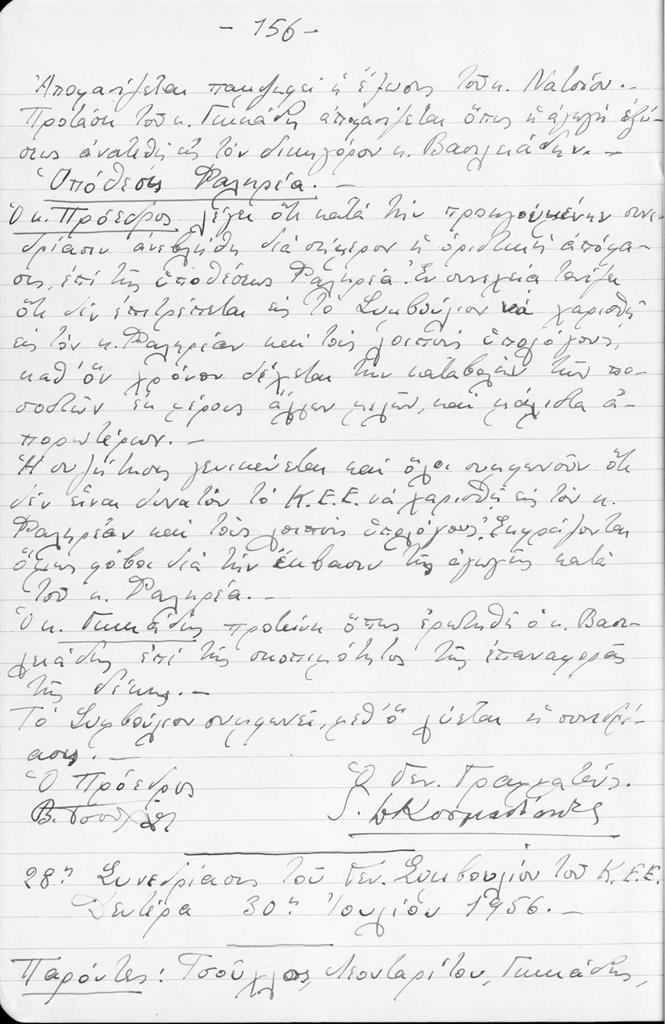 - 156 -
Ἀποφασίζεται παμψηφεί ἡ ἔξωσις τοῦ κ. Νατσιου. -
Πρότασει τοῦ κ. Γικκάδη ἀποφασίζεται ὅπως ἡ ἀγωγή ἐξώ-
σεως ἀνατεθῇ εἰς τόν δικηγόρον κ. Βασιλειάδην. -
Ὑπόθεσις Φαληρέα. -
Ὁ κ. Πρόεδρος λέγει ὅτι κατά τήν προηγουμένην συνε-
δρίασιν ἀνεβλήθη διά σήμερον ἡ ὁριστική ἀπόφα-
σις, ἐπί τῆς ὑποθέσεως Φαληρέα. Ἐν συνεχείᾳ τονίζει
ὅτι δέν ἐπιτρέπεται εἰς τό Συμβούλιον νά χαρισθῇ
εἰς τόν κ. Φαληρέαν καί τούς λοιπούς ὑπολόγους,
καθ' ὅν χρόνον δέχεται τήν καταβολήν τῶν πο-
σοστῶν ἐκ μέρους ἄλλων μελῶν, καί μάλιστα ἀ-
πορωτέρων. -
Ἡ συζήτησις γενικεύεται καί ὅλοι συμφωνοῦν ὅτι
δέν εἶναι δυνατόν τό Κ.Ε.Ε. νά χαρισθῇ εἰς τόν κ.
Φαληρέαν καί τούς λοιπούς ὑπολόγους. Ἐκφράζονται
ὅμως φόβοι διά τήν ἔκβασιν τῆς ἀγωγῆς κατά
τοῦ κ. Φαληρέα. -
Ὁ κ. Γικκάδης προτείνει ὅπως ἐρωτηθῇ ὁ κ. Βασι-
λειάδης ἐπί τῆς σκοπιμότητος τῆς ἐπαναφορᾶς
τῆς δίκης. -
Τό Συμβούλιον συμφωνεῖ, μεθ' ὅ λύεται ἡ συνεδρί-
ασις. -
Ὁ Πρόεδρος Ὁ Γεν. Γραμματεύς.
Β. Τσούχλος
28η Συνεδρίασις τοῦ Γεν. Συμβουλίου τοῦ Κ.Ε.Ε.
Δευτέρα 30η Ἰουλίου 1956. -
Παρόντες: Τσούχλος, Λεονταρίτου, Γικκάδης,